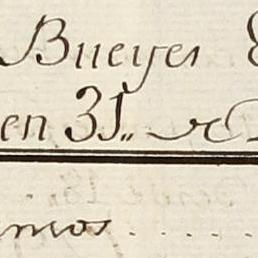 Bueyes
en 31.,
mos